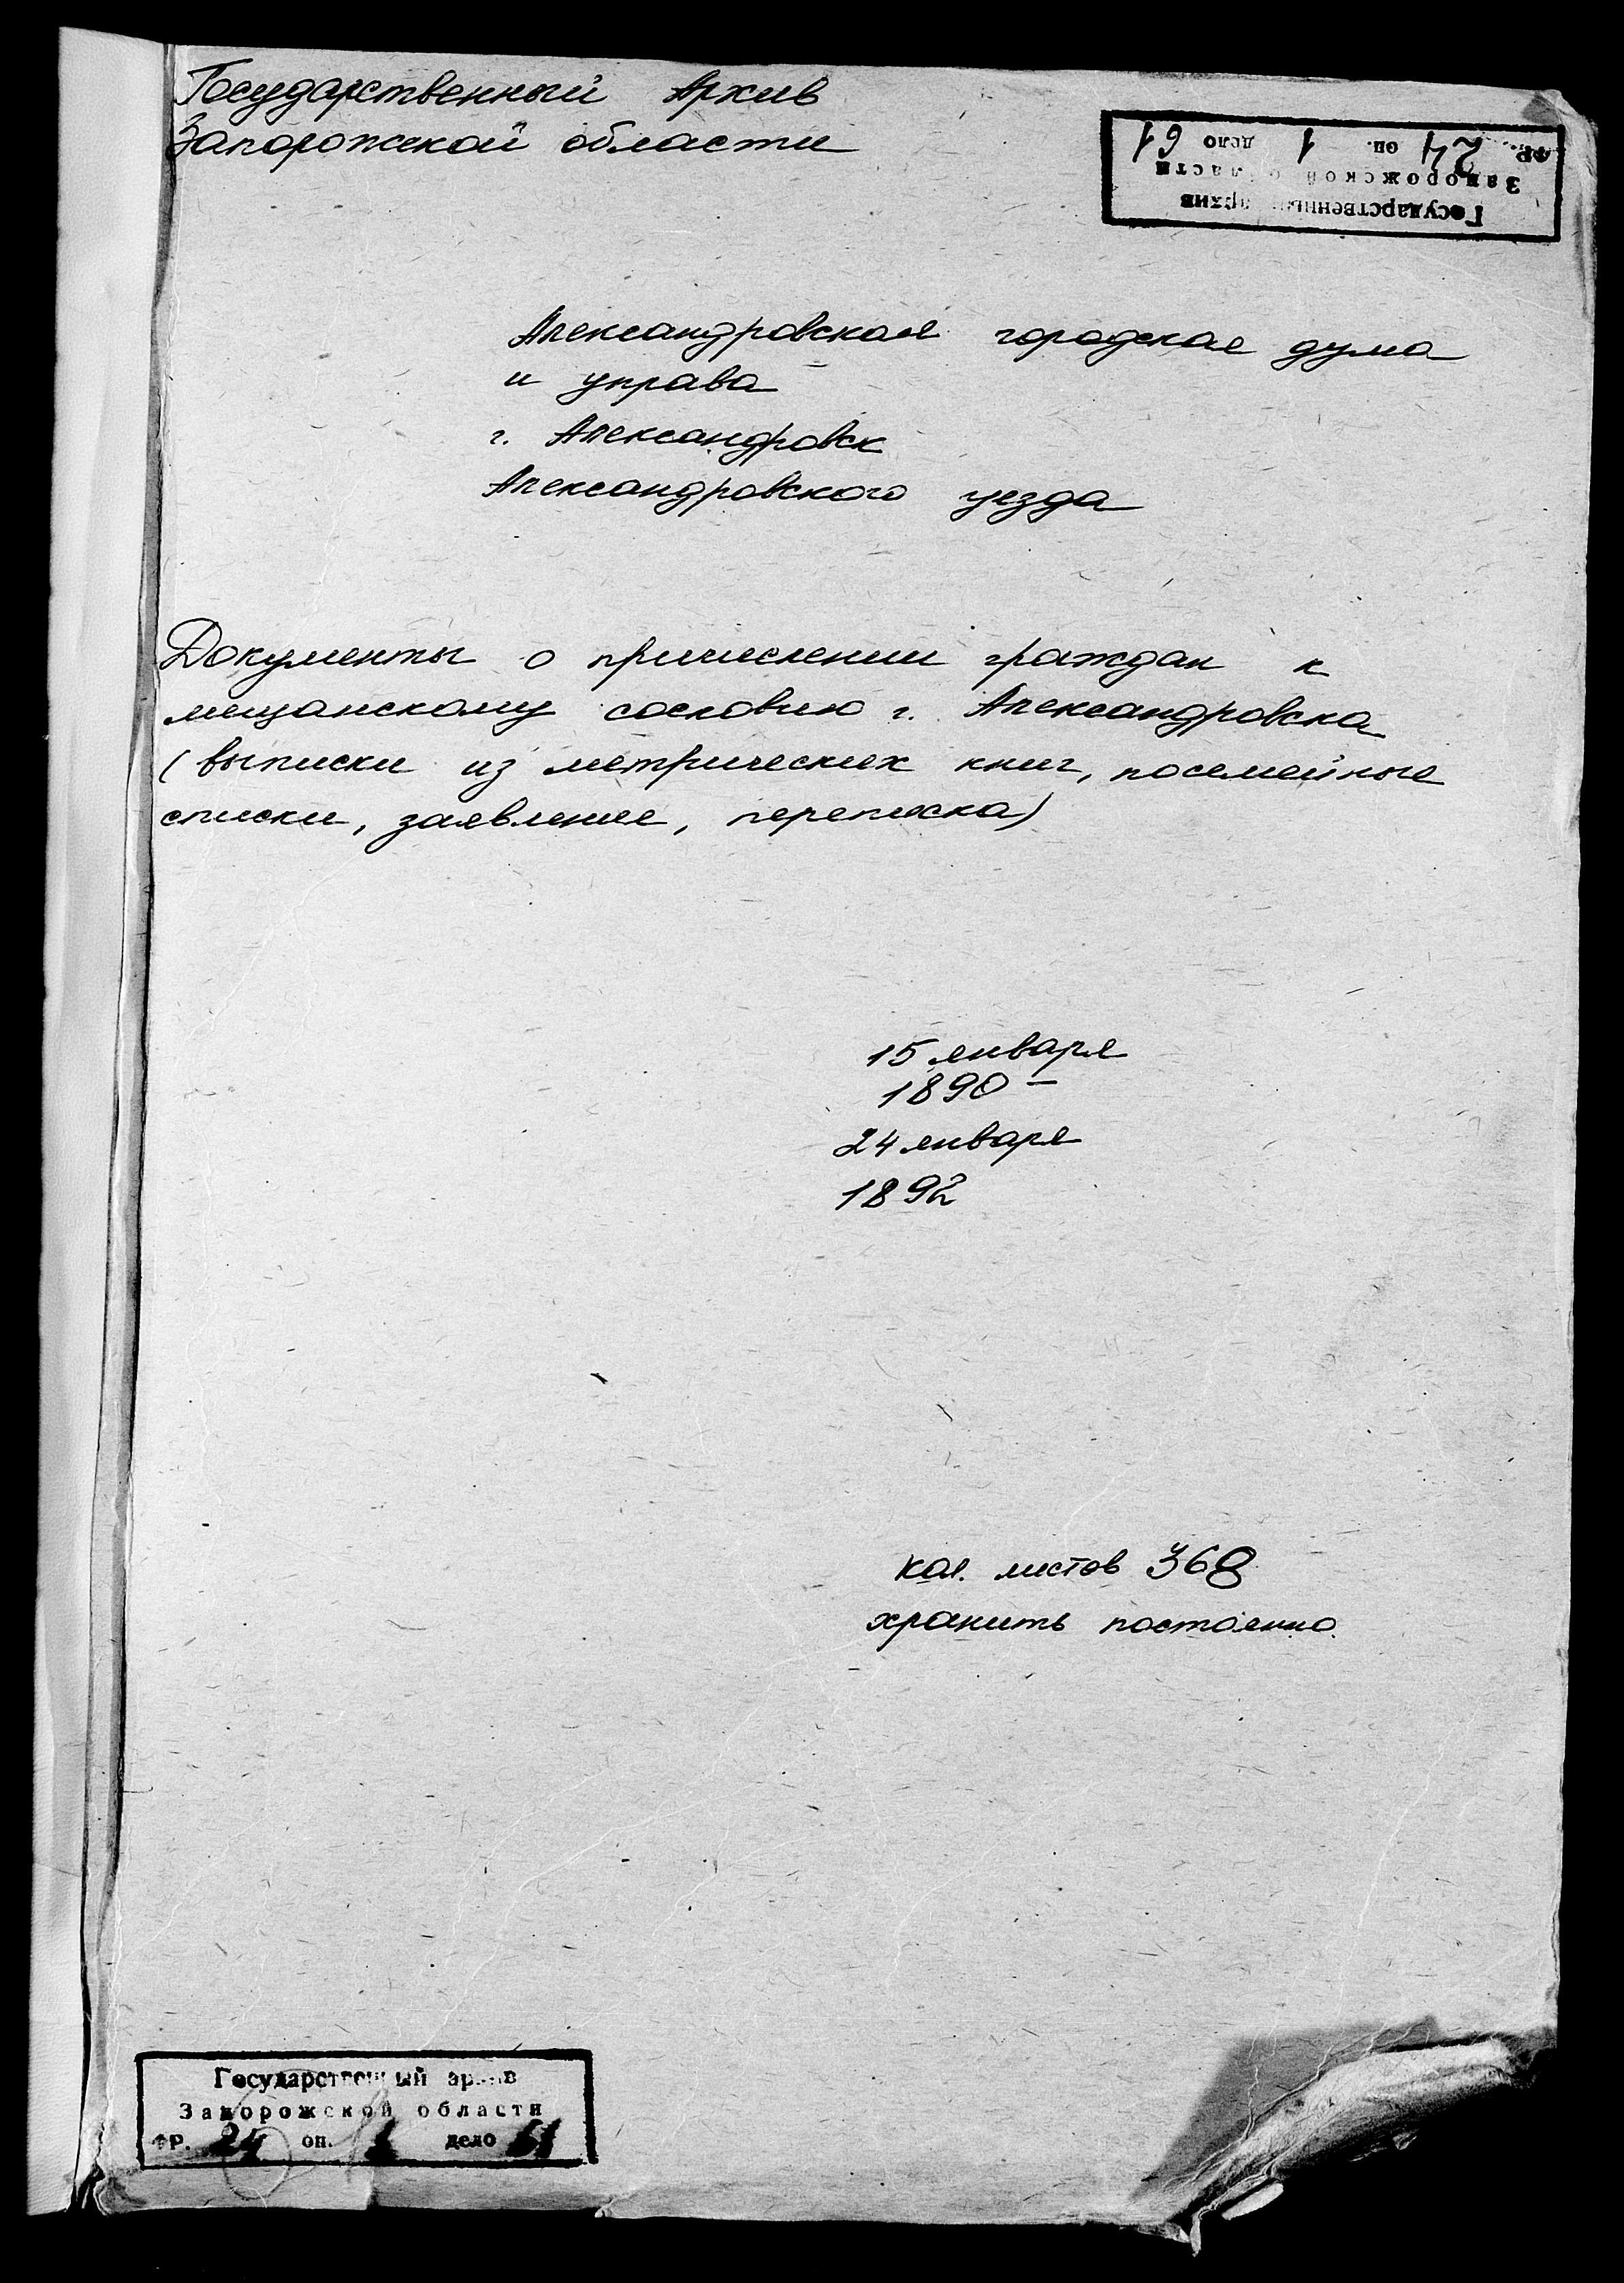 Государственный Архив
Запорожской области
Государственный архив
Запорожской области
ФР. 24 оп. 1 дело 61
Александровская городская дума
и управа
г. Александровск
Александровского уезда
Документы о причислении граждан к
мещанскому сословию г. Александровска
(выписки из метрических книг, посемейные
списки, заявление, переписка)
15 января
1890 –
24 января
1892
кол. листов 368
хранить постоянно.
Государственный архив
Запорожской области
ФР. 24 оп. 1 дело 61